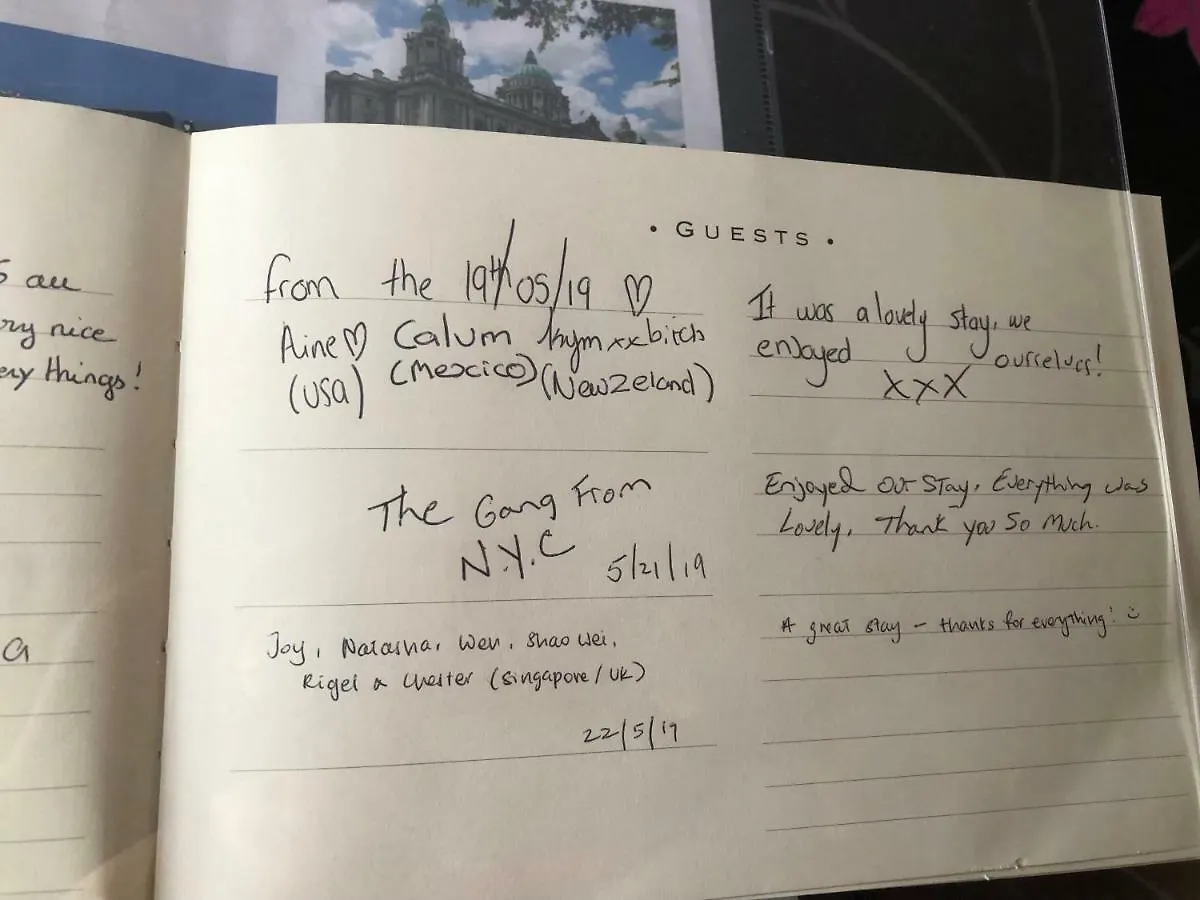 s all
ry nice
ery things!
a
• GUESTS •
from the 19th/05/19 ♡
Aine♡ Calum kymxxbitch
(USA) (Mexico) (NewZeland)
It was a lovely stay, we
enjoyed ourselves!
XxX
The Gang From
N.Y.C
5/21/19
Enjoyed Our Stay, Everything was
Lovely, Thank you So Much.
Joy, Natasha, Wen, Shao Wei,
Rigel & Chester (Singapore/UK)
22/5/19
A great stay – thanks for everything! :)